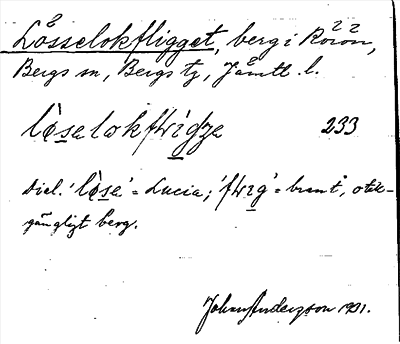 Lösselokfligget, berg i Rörön,
Bergs sn, Bergs tg, Jämtl. l.
233
Dial. 'lòsa' = Lucia; 'flig' = brant, otill-
gängligt berg.
Johan Anderzson 1931.